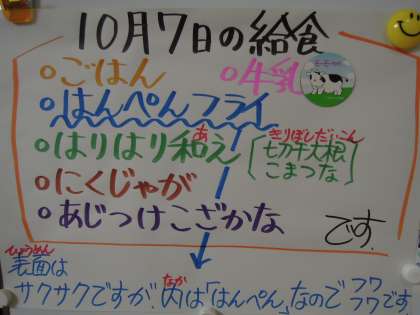 10月7日の給食
○ごはん ○牛乳
○はんぺんフライ
○はりはり和え
あ
きりぼしだいこん
切干大根
こまつな
○にくじゃが
○あじつけこざかな
です。
ひょうめん
表面は
サクサクですが、内は「はんぺん」なので フワフワです
なか